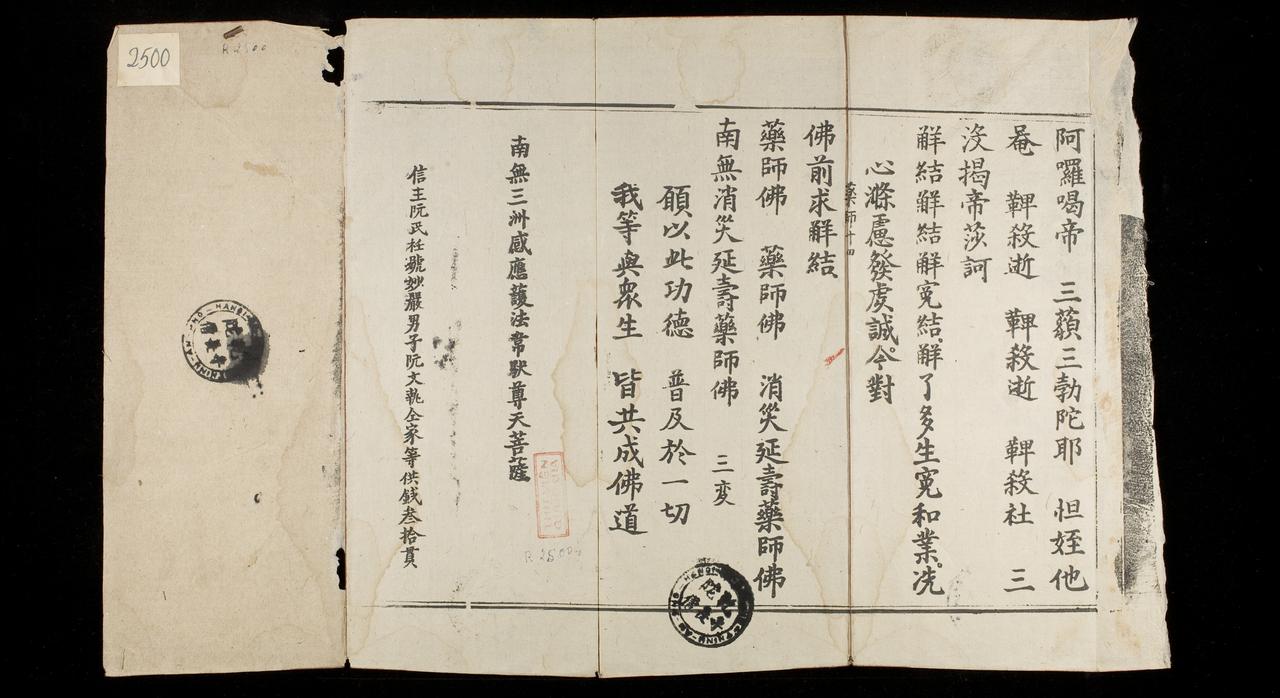 阿囉喝帝　三藐三勃陀耶　怛姪他
唵　鞞殺逝　鞞殺逝　鞞殺社　三
沒揭帝莎訶
解結解結解冤結解了多生冤和業洗
心滌慮發虔誠今對
藥師十四
佛前求解結
藥師佛　藥師佛　消災延壽藥師佛
南無消災延壽藥師佛　三变
願以此功德　普及於一切
我等與衆生　皆共成佛道
南無三洲感應護法韋馱尊天菩薩
信主阮氏 號妙嚴男子阮文軌全家等供錢叁拾貫
2500
R 2500
R 2500
HANOI